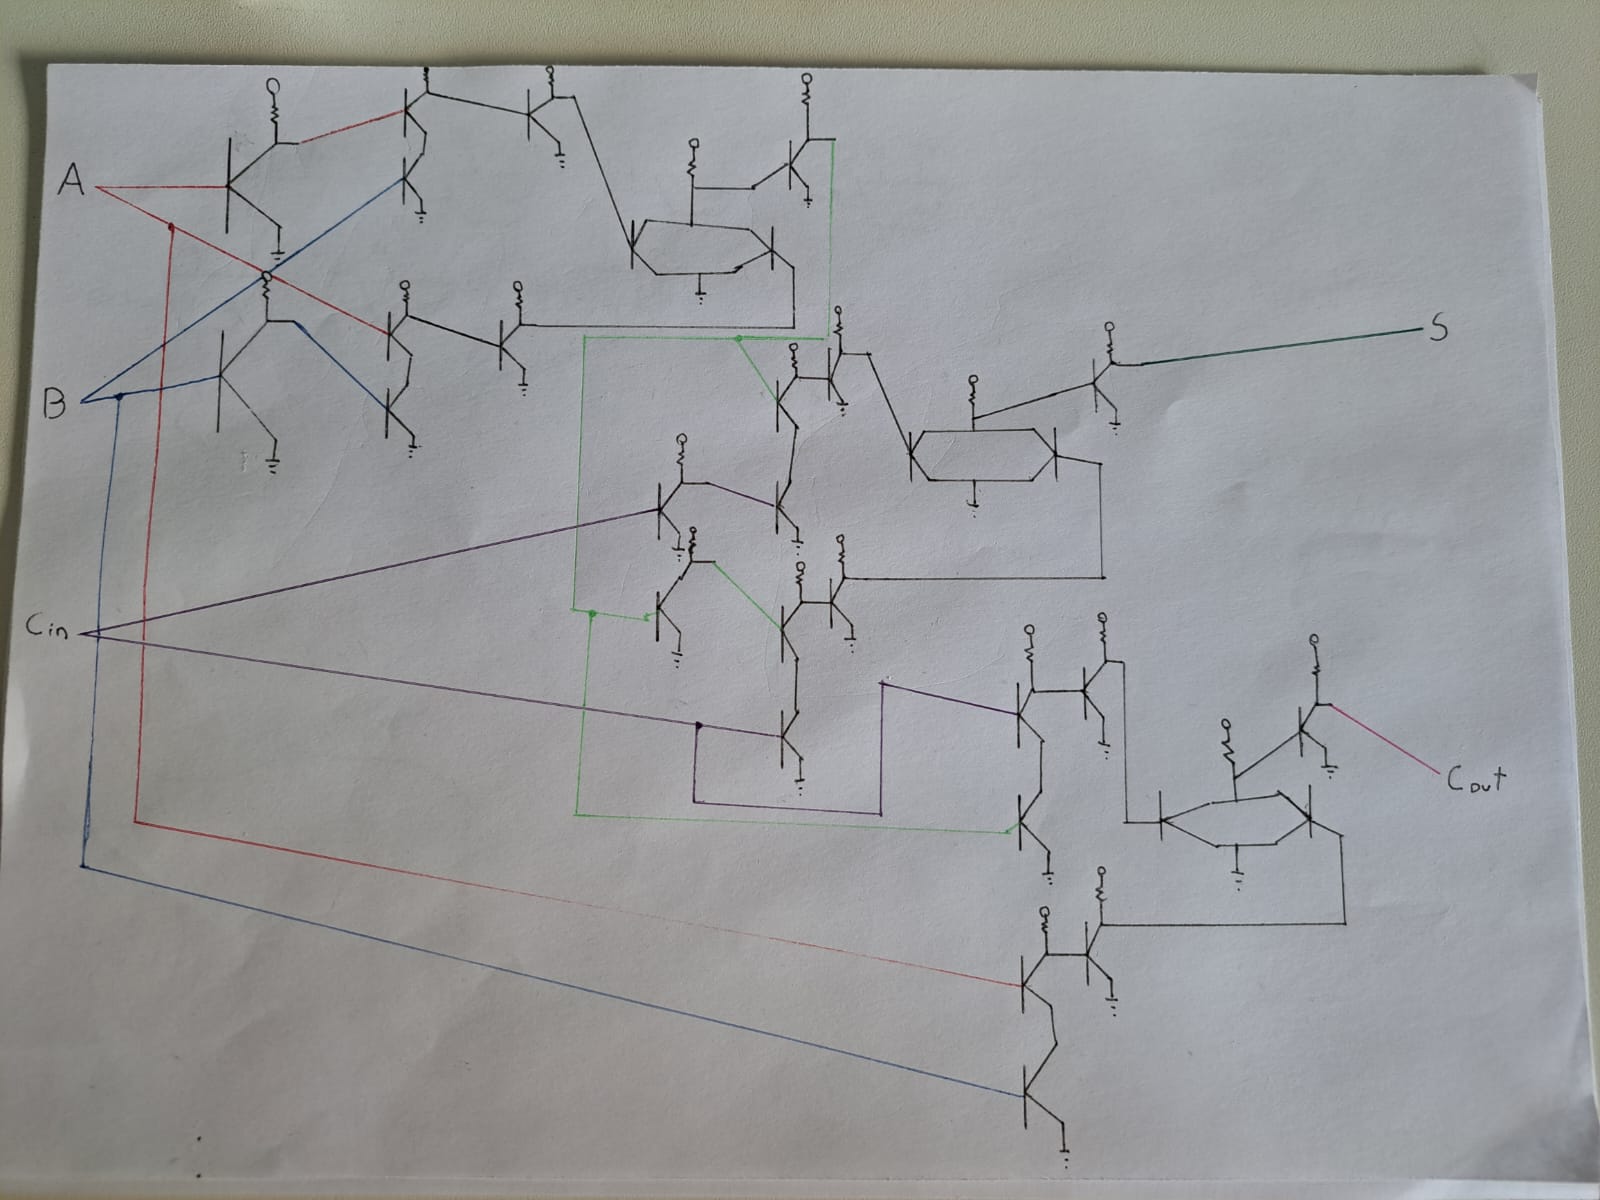 A
B
S
Cin
Cout